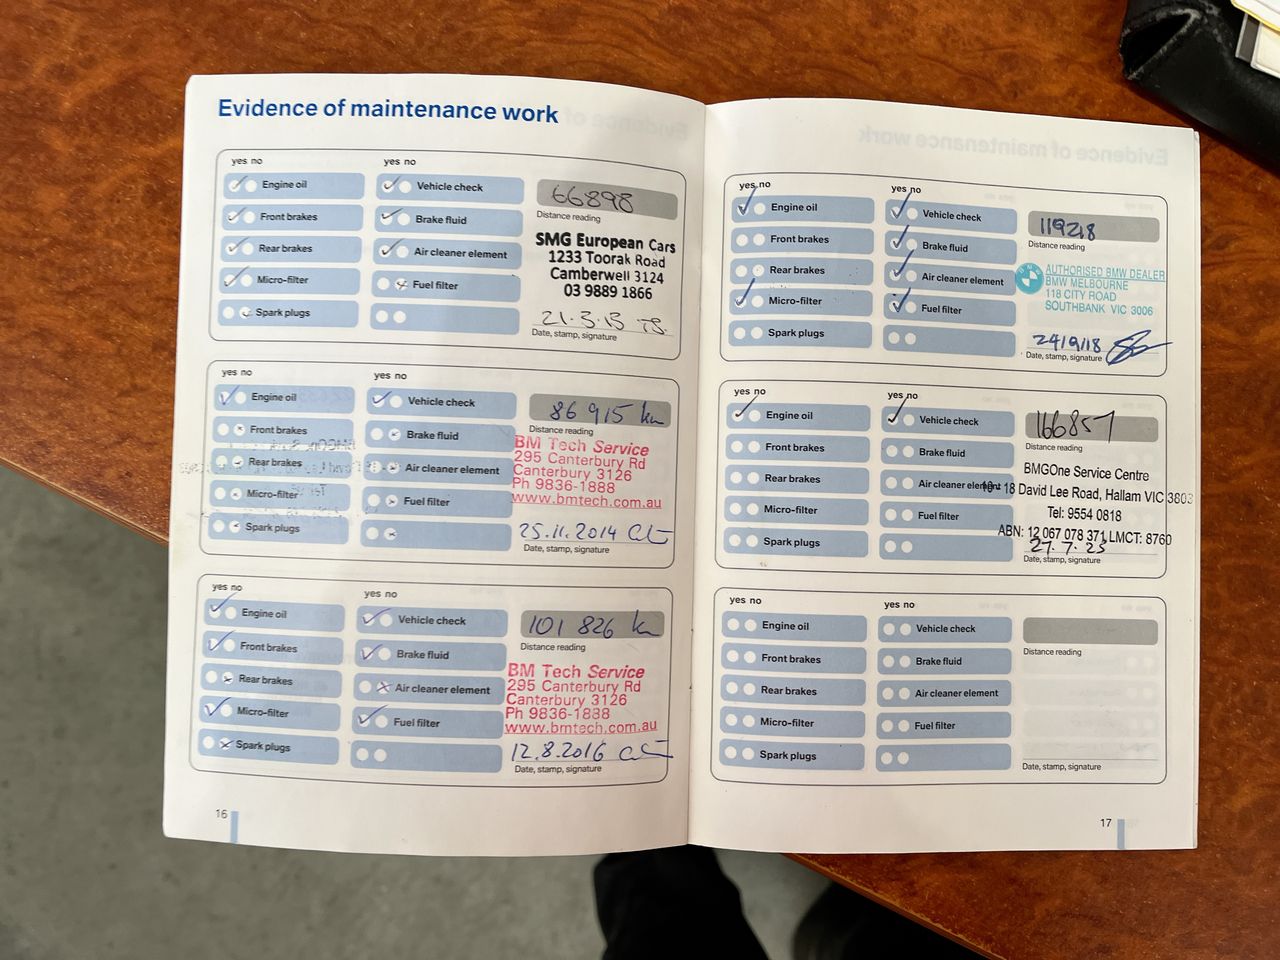 Evidence of maintenance work
yes no
yes no
Engine oil
Vehicle check
66898
Front brakes
Brake fluid
Distance reading
Rear brakes
Air cleaner element
SMG European Cars
1233 Toorak Road
Camberwell 3124
03 9889 1866
Micro-filter
Fuel filter
Spark plugs
21.3.13
Date, stamp, signature
yes no
yes no
Engine oil
Vehicle check
86 915 km
Front brakes
Brake fluid
Distance reading
Rear brakes
Air cleaner element
BM Tech Service
295 Canterbury Rd
Canterbury 3126
Ph 9836-1888
www.bmtech.com.au
Micro-filter
Fuel filter
Spark plugs
25.11.2014
Date, stamp, signature
yes no
yes no
Engine oil
Vehicle check
101 826 km
Front brakes
Brake fluid
Distance reading
Rear brakes
Air cleaner element
BM Tech Service
295 Canterbury Rd
Canterbury 3126
Ph 9836-1888
www.bmtech.com.au
Micro-filter
Fuel filter
Spark plugs
12.8.2016
Date, stamp, signature
16
yes no
yes no
Engine oil
Vehicle check
119218
Front brakes
Brake fluid
Distance reading
Rear brakes
Air cleaner element
AUTHORISED BMW DEALER
BMW MELBOURNE
118 CITY ROAD
SOUTHBANK VIC 3006
Micro-filter
Fuel filter
Spark plugs
24/9/18
Date, stamp, signature
yes no
yes no
Engine oil
Vehicle check
166857
Front brakes
Brake fluid
Distance reading
Rear brakes
Air cleaner element
BMGOne Service Centre
18 David Lee Road, Hallam VIC 3803
Tel: 9554 0818
ABN: 12 067 078 371 LMCT: 8760
Micro-filter
Fuel filter
Spark plugs
27.7.23
Date, stamp, signature
yes no
yes no
Engine oil
Vehicle check
Front brakes
Brake fluid
Distance reading
Rear brakes
Air cleaner element
Micro-filter
Fuel filter
Spark plugs
Date, stamp, signature
17